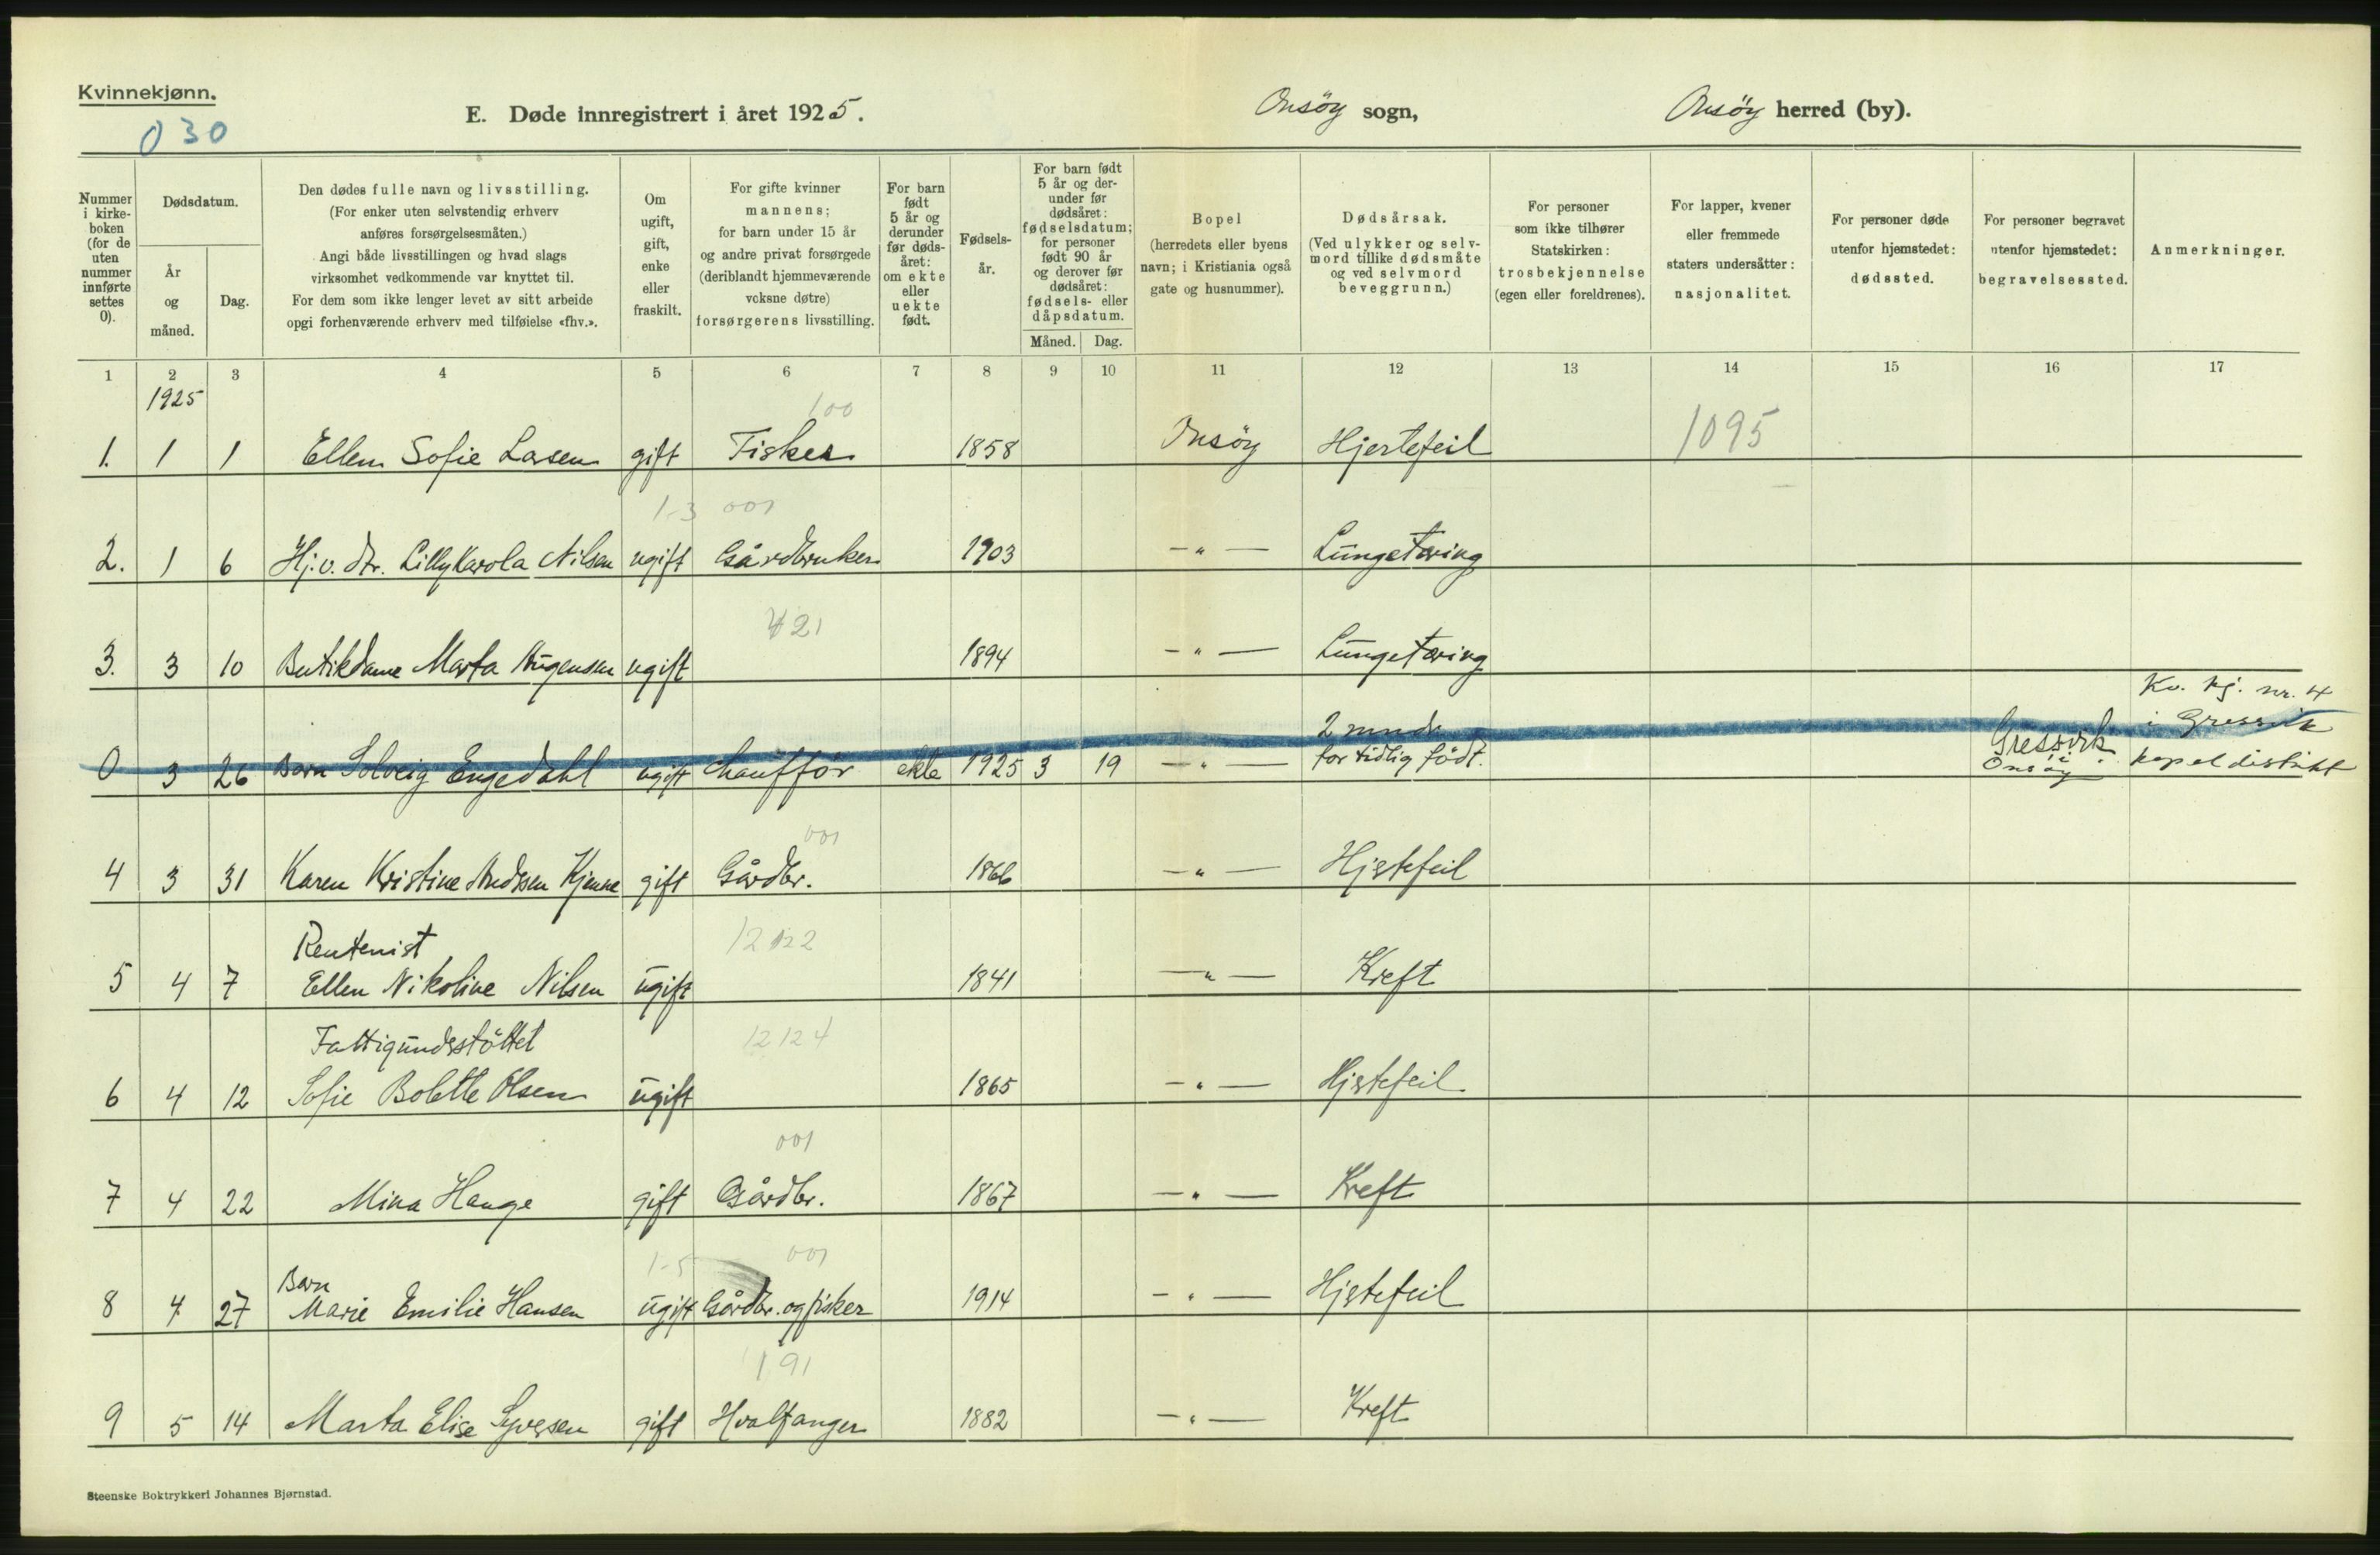 Kvinnekjønn.
030
E. Døde innregistrert i året 1925.
Onsöy sogn,
Onsöy herred (by).
Nummer i kirke- boken (for de uten nummer innførte settes 0).
Dødsdatum.
År og måned.
Dag.
Den dødes fulle navn og livsstilling.
(For enker uten selvstendig erhverv
anføres forsørgelsesmåten.)
Angi både livsstillingen og hvad slags
virksomhet vedkommende var knyttet til.
For dem som ikke lenger levet av sitt arbeide
opgi forhenværende erhverv med tilføielse «fhv.».
Om ugift, gift, enke eller fraskilt.
For gifte kvinner
mannens;
for barn under 15 år
og andre privat forsørgede
(deriblandt hjemmeværende
voksne døtre)
forsørgerens livsstilling.
For barn født 5 år og derunder før døds- året: om ekte eller uekte født.
Fødsels- år.
For barn født 5 år og der- under før dødsåret: fødselsdatum; for personer født 90 år og derover før dødsåret: fødsels- eller dåpsdatum.
Måned. Dag.
Bopel
(herredets eller byens
navn; i Kristiania også
gate og husnummer).
Dødsårsak.
(Ved ulykker og selv-
mord tillike dødsmåte
og ved selvmord
beveggrunn.)
For personer
som ikke tilhører
Statskirken:
trosbekjennelse
(egen eller foreldrenes).
For lapper, kvener
eller fremmede
staters undersåtter:
nasjonalitet.
For personer døde
utenfor hjemstedet:
dødssted.
For personer begravet
utenfor hjemstedet:
begravelsessted.
Anmerkninger.
1 2 3 4 5 6 7 8 9 10 11 12 13 14 15 16 17
1925
100
1. 1 1 Ellen Sofie Larsen gift Fisker 1858 Onsöy Hjertefeil 1095
1-3 001
2. 1 6 Hj.v. dtr. Lilly Karola Nilsen ugift Gårdbruker 1903 -"- Lungetæring
421
3. 3 10 Butikdame Marta ugift 1894 -"- Lungetæring
Kv. kj. nr. 4
2 mndr. i Gressvik
0 3 26 Barn Solveig Engedahl ugift Chaufför ekte 1925 3 19 -"- for tidlig födt. Gressvik i Onsöy kapeldistrikt
001
4 3 31 Karen Kristine Andssen Kjenne gift Gårdbr. 1866 -"- Hjertefeil
Rentenist 12122
5 4 7 Ellen Nikoline Nilsen ugift 1841 -"- Kreft
Fattigundsstöttet 12124
6 4 12 Sofie Bolette Olsen ugift 1865 -"- Hjertefeil
001
7 4 22 Mina Hauge gift Gårdbr. 1867 -"- Kreft
1-5 001
Barn
8 4 27 Marie Emilie Hansen ugift Gårdbr. og fisker 1914 -"- Hjertefeil
191
9 5 14 Marta Elise Syversen gift Hvalfanger 1882 -"- Kreft
Steenske Boktrykkeri Johannes Bjørnstad.